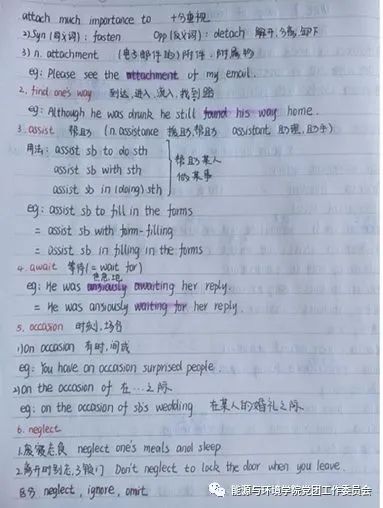 attach much importance to 十分重视
2) Syn (同义词): fasten Opp (反义词): detach 解开,分离,卸下
3) n. attachment (电子邮件的)附件,附属物
eg: Please see the attachment of my email.
2. find one's way 到达,进入,流入,找到路
eg: Although he was drunk he still found his way home.
3. assist 帮助 (n. assistance 援助,帮助 assistant 助理,助手)
用法: assist sb to do sth
assist sb with sth 帮助某人
assist sb in (doing) sth 做某事
eg: assist sb to fill in the forms
= assist sb with form-filling
= assist sb in filling in the forms
4. await 等待(= wait for)
eg: He was anxiously awaiting her reply.
= He was anxiously waiting for her reply.
5. occasion 时刻,场合
1) On occasion 有时,间或
eg: You have on occasion surprised people.
2) on the occasion of 在...之际
eg: on the occasion of sb's wedding 在某人的婚礼之际
6. neglect
1. 废寝忘食 neglect one's meals and sleep
2. 离开时别忘了锁门 Don't neglect to lock the door when you leave.
neglect, ignore, omit
能源与环境学院党团工作委员会